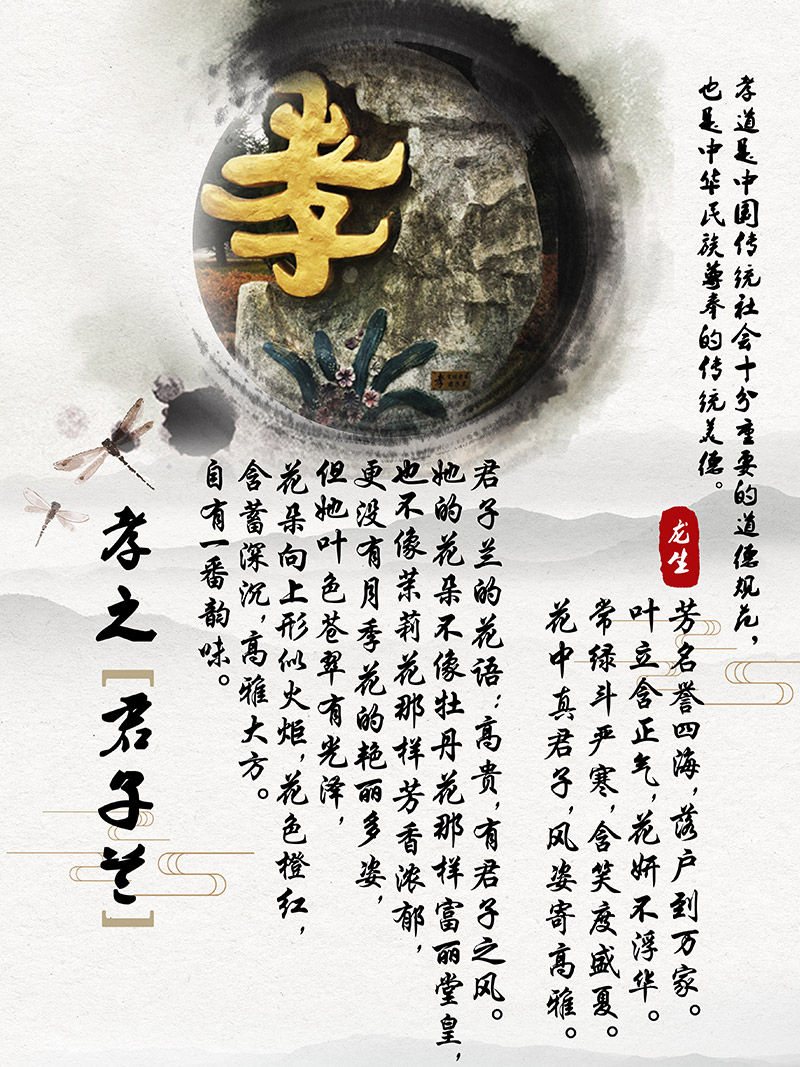 孝
孝道是中国传统社会十分重要的道德规范，
也是中华民族尊奉的传统美德。
龙生
芳名誉四海，落户到万家。
叶立含正气，花妍不浮华。
常绿斗严寒，含笑度盛夏。
花中真君子，风姿寄高雅。
君子兰的花语：高贵，有君子之风。
她的花朵不像牡丹花那样富丽堂皇，
也不像茉莉花那样芳香浓郁，
更没有月季花的艳丽多姿，
但她叶色苍翠有光泽，
花朵向上形似火炬，花色橙红，
含蓄深沉，高雅大方。
自有一番韵味。
孝之[君子兰]